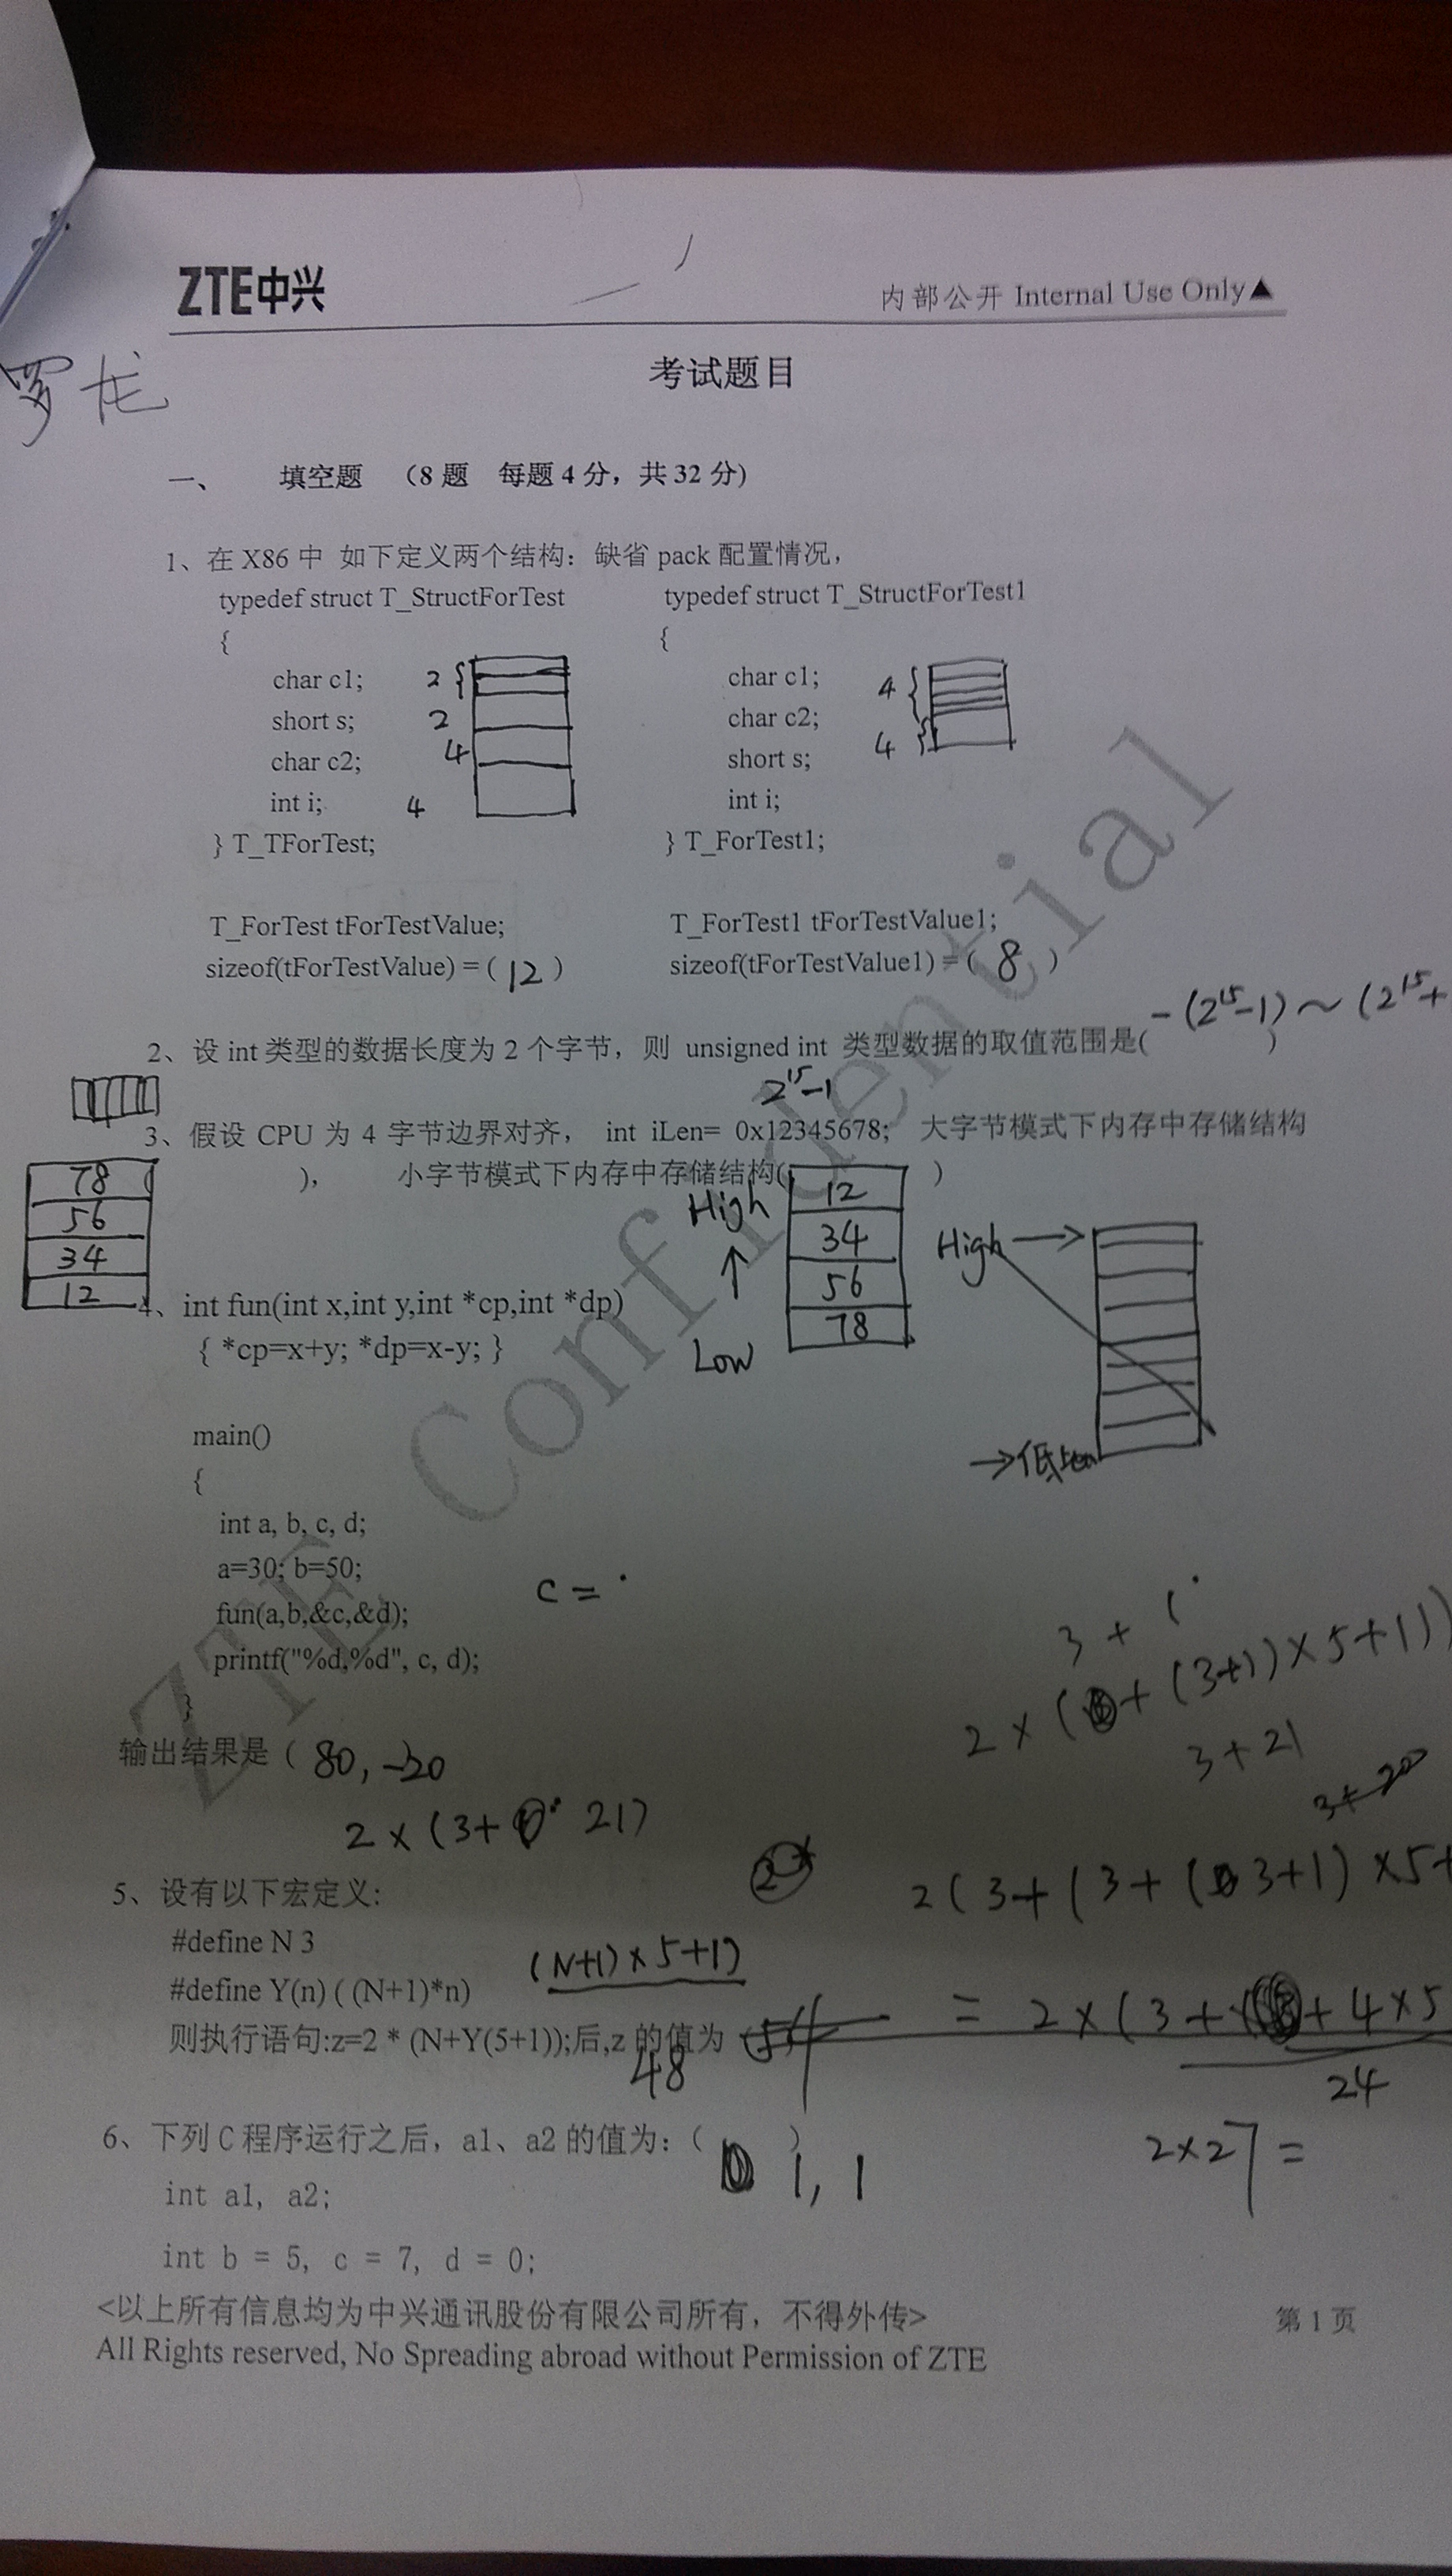 ZTE中兴
内部公开 Internal Use Only▲
考试题目
罗龙
一、 填空题 （8题 每题4分，共32分)
1、在 X86 中 如下定义两个结构：缺省 pack 配置情况，
typedef struct T_StructForTest
{
char c1;
short s;
char c2;
int i;
} T_TForTest;
2
2
4
4
T_ForTest tForTestValue;
sizeof(tForTestValue) = ( 12 )
typedef struct T_StructForTest1
{
char c1;
char c2;
short s;
int i;
} T_ForTest1;
4
4
T_ForTest1 tForTestValue1;
sizeof(tForTestValue1) = ( 8 )
-(2¹⁵-1)～(2¹⁵+
2、设 int 类型的数据长度为 2 个字节，则 unsigned int 类型数据的取值范围是( )
2¹⁵-1
3、假设 CPU 为 4 字节边界对齐， int iLen= 0x12345678; 大字节模式下内存中存储结构
( ), 小字节模式下内存中存储结构( )
78
56
34
12
High
↑
Low
12
34
56
78
High →
→低
4、int fun(int x,int y,int *cp,int *dp)
{ *cp=x+y; *dp=x-y; }
main()
{
int a, b, c, d;
a=30; b=50;
fun(a,b,&c,&d);
printf("%d,%d", c, d);
}
c =
3 + (
2 × ( + (3+1))×5+1))
3 + 21
3+20
输出结果是（ 80, -20
2 × (3+ 21)
2(3+(3+( 3+1)×5+
5、设有以下宏定义:
#define N 3
#define Y(n) ( (N+1)*n)
(N+1)×5+1)
则执行语句:z=2 * (N+Y(5+1));后,z 的值为
48
= 2×(3+( + 4×5
24
2×27=
6、下列 C 程序运行之后，a1、a2 的值为：（ ）
1, 1
int a1, a2;
int b = 5, c = 7, d = 0;
<以上所有信息均为中兴通讯股份有限公司所有，不得外传>
第 1 页
All Rights reserved, No Spreading abroad without Permission of ZTE
ZTE Confidential